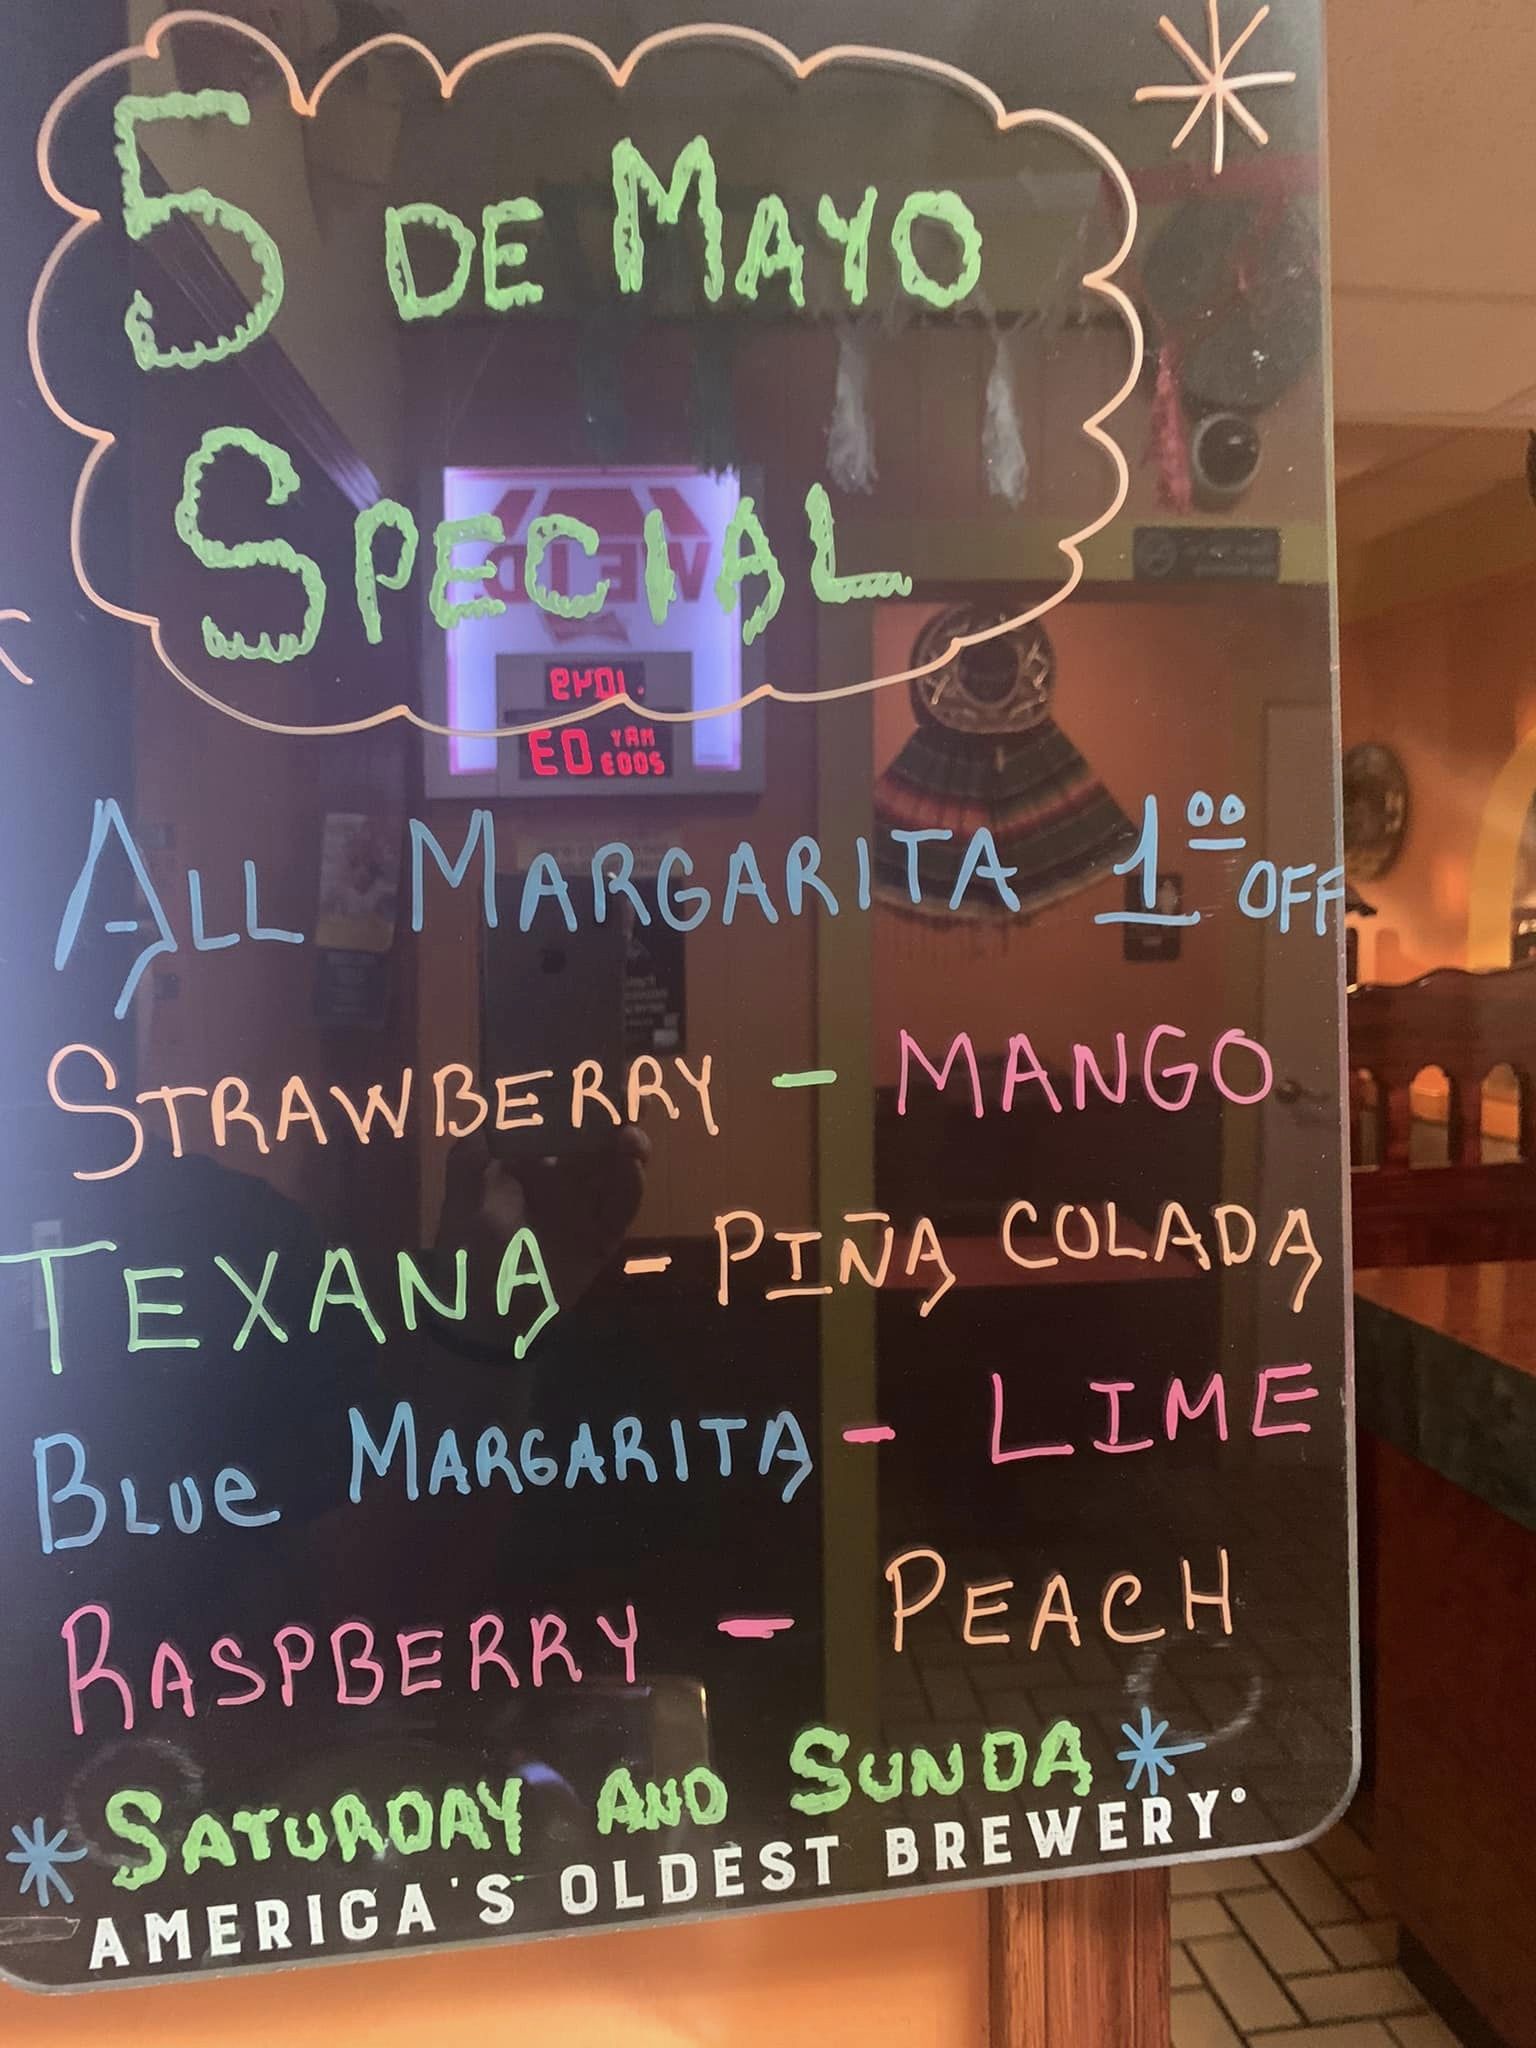 5 DE MAYO
SPECIAL
WE ID
03 MAY
2003
ALL MARGARITA 1.00 OFF
STRAWBERRY - MANGO
TEXANA - PIÑA COLADA
BLUE MARGARITA - LIME
RASPBERRY - PEACH
SATURDAY AND SUNDA
AMERICA'S OLDEST BREWERY®